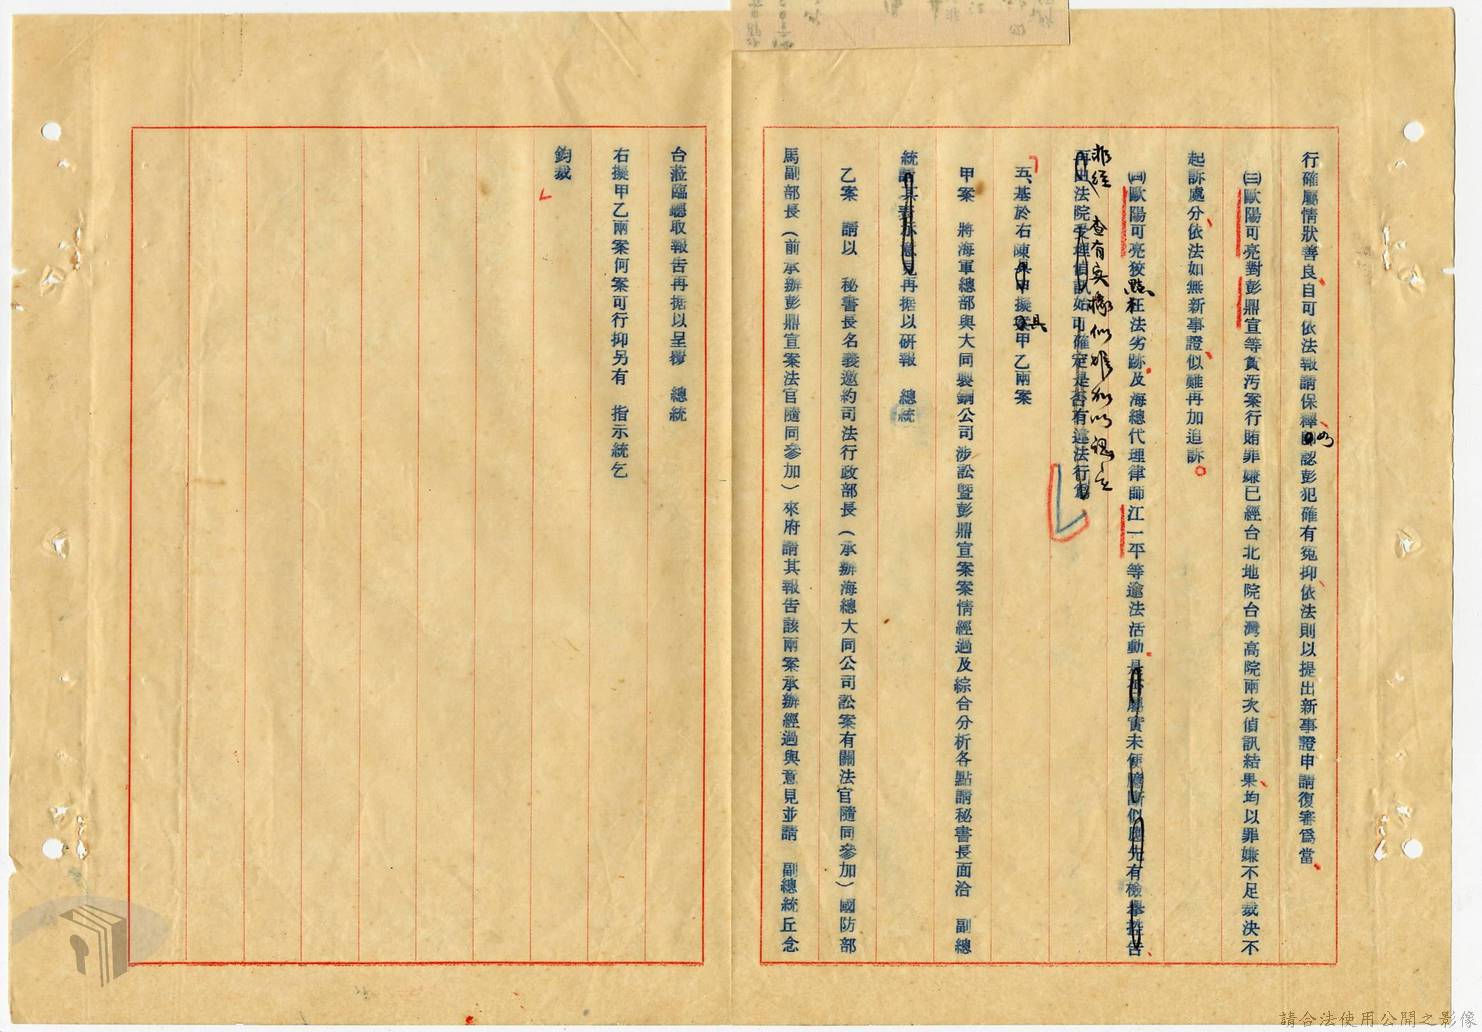 行確屬情狀善良自可依法報請保釋如認彭犯確有冤抑依法則以提出新事證申請復審為當
㈢歐陽可亮對彭鼎宣等貪污案行賄罪嫌已經台北地院台灣高院兩次偵訊結果均以罪嫌不足裁決不
起訴處分依法如無新事證似難再加追訴
㈣歐陽可亮狡黠枉法劣跡及海總代理律師江一平等違法活動是否屬實未便臆斷似應先有檢舉控告
非經 查有實據似難加以認定
再由法院受理偵訊始可確定是否有違法行為
五、基於右陳具擬甲乙兩案
甲案　將海軍總部與大同製鋼公司涉訟暨彭鼎宣案案情經過及綜合分析各點請秘書長面洽　副總
統請其表示意見再据以研報　總統
乙案　請以　秘書長名義邀約司法行政部長（承辦海總大同公司訟案有關法官隨同參加）國防部
馬副部長（前承辦彭鼎宣案法官隨同參加）來府請其報告該兩案承辦經過與意見並請　副總統丘念
台蒞臨聽取報告再据以呈復　總統
右擬甲乙兩案何案可行抑另有　指示統乞
鈞裁
請合法使用公開之影像